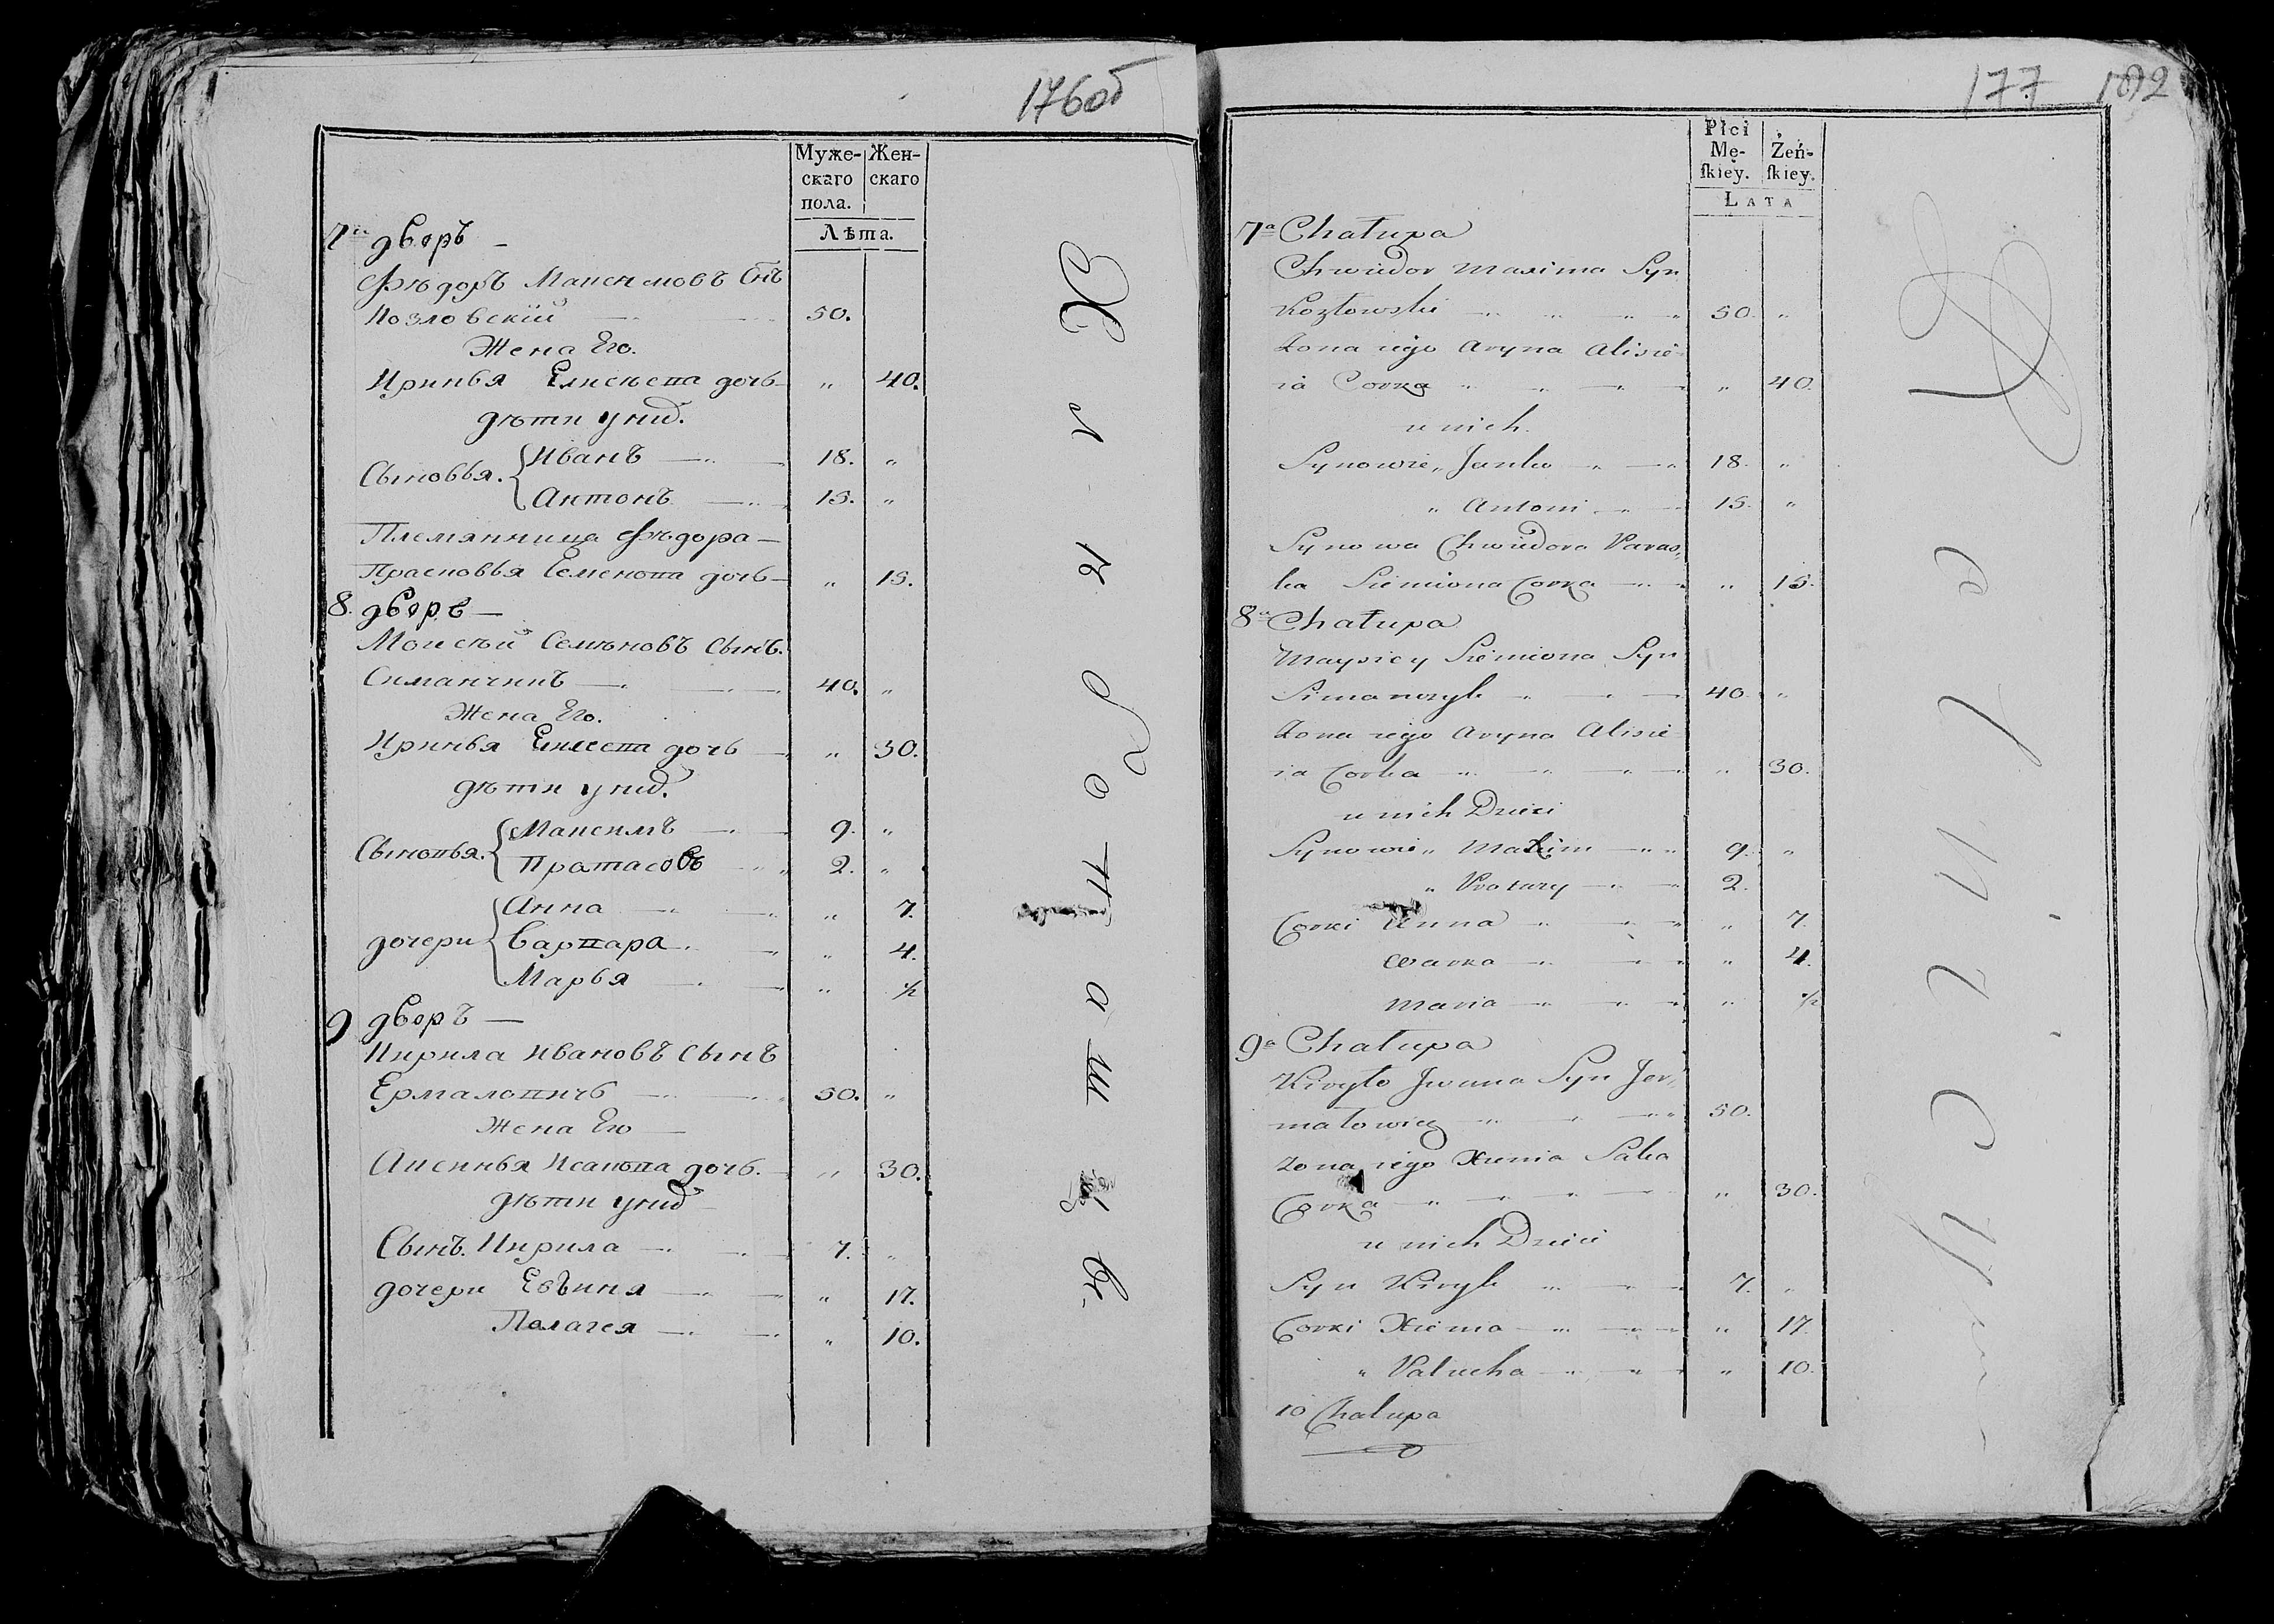 176об
Муже-
скаго
пола.
Жен-
скаго
Лѣта.
7й дворъ —
Ѳѣдоръ Максимовъ Снъ
Козловскій 50.
Жена Его.
Иринья Елисѣева дочь „ 40.
дѣти у них.
Сыновья. Иванъ 18. „
Антонъ 15. „
Племянница Ѳѣдора —
Прасковья Семенова дочь — „ 15.
8. дворъ —
Моисѣй Семѣновъ Сынъ.
Симанчикъ 40. „
Жена Его.
Иринья Елисеева дочь „ 30.
дѣти у них.
Сыновья. Максимъ 9. „
Пратасовъ 2. „
дочери Анна „ 7.
Варвара „ 4.
Марья „ ½
9 дворъ —
Кирила Ивановъ Сынъ
Ермаловичъ 50. „
Жена Его —
Аксинья Исакова дочь. „ 30.
дѣти у них
Сынъ. Кирила 7. „
дочери Евъиня „ 17.
Палагея „ 10.
177 182
Płci
Mę-
ſkiey.
Żeń-
ſkiey.
LATA
7a Chałupa
Chwiedor Maxima Syn
Kozłowski 50. „
Zona iego Aryna Alisie-
ia Corka „ 40.
u nich.
Synowie „ Janko 18. „
„ Antoni 15. „
Synowa Chwiedora Paras-
ka Siemiona Corka „ 15.
8a Chałupa
Maysiey Siemiona Syn
Simanczyk 40. „
Zona iego Aryna Alisie-
ia Corka „ 30.
u nich Dzieci
Synowie „ Maxim 9. „
„ Protazy 2.
Corki Anna „ 7.
Warka „ 4.
Maria „ ½
9a Chałupa
Kiryło Jwana Syn Jer-
małowicz 50.
Zona iego Xienia Saka
Corka „ 30.
u nich Dzieci
Syn Kiryk 7. „
Corki Xienia „ 17.
„ Palucha „ 10.
10 Chałupa